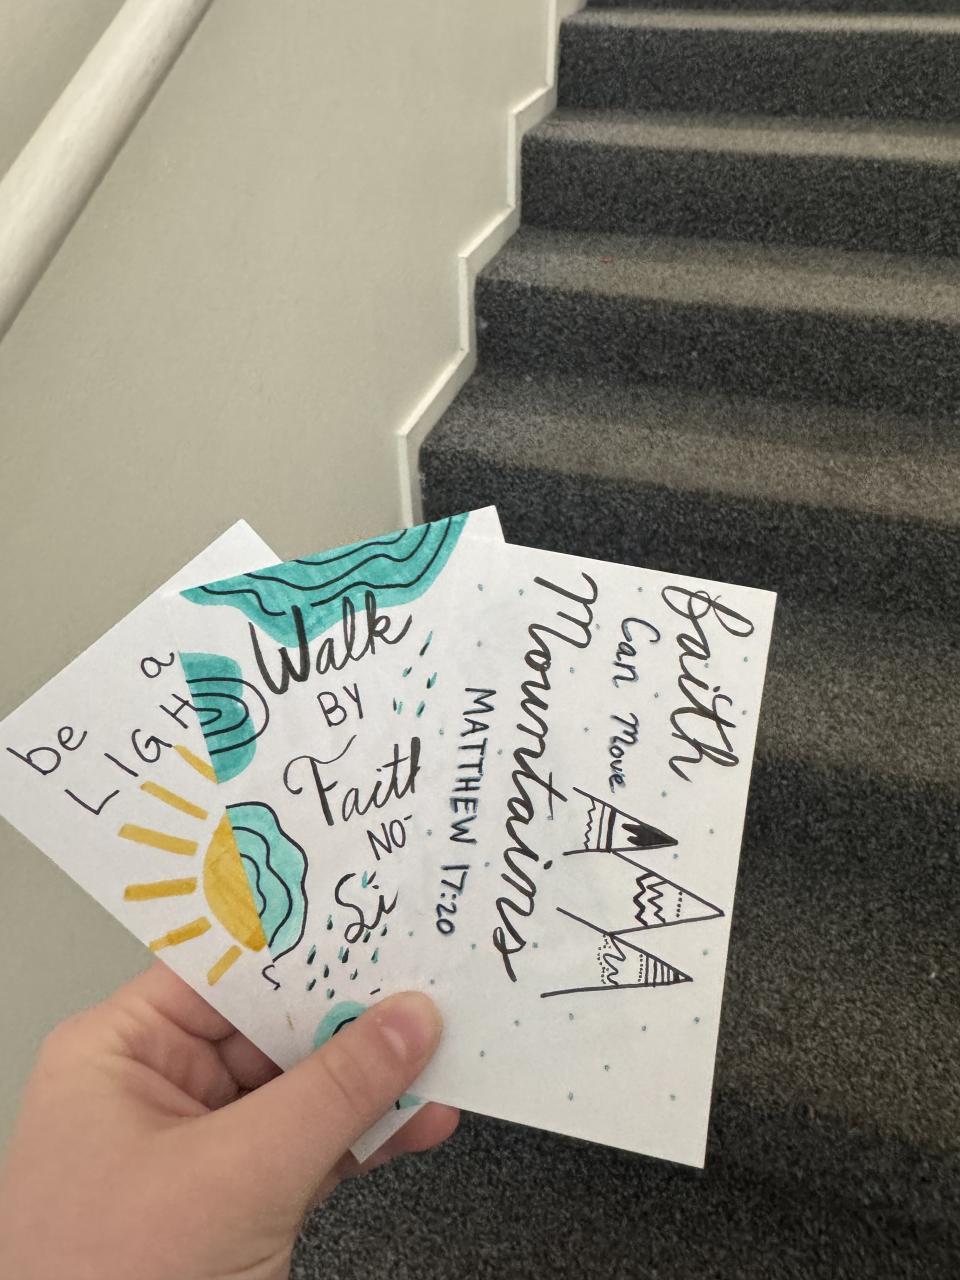 be
a
LIGH
Walk
BY
Faith
NO
Si
Faith
Can Move
Mountains
MATTHEW 17:20